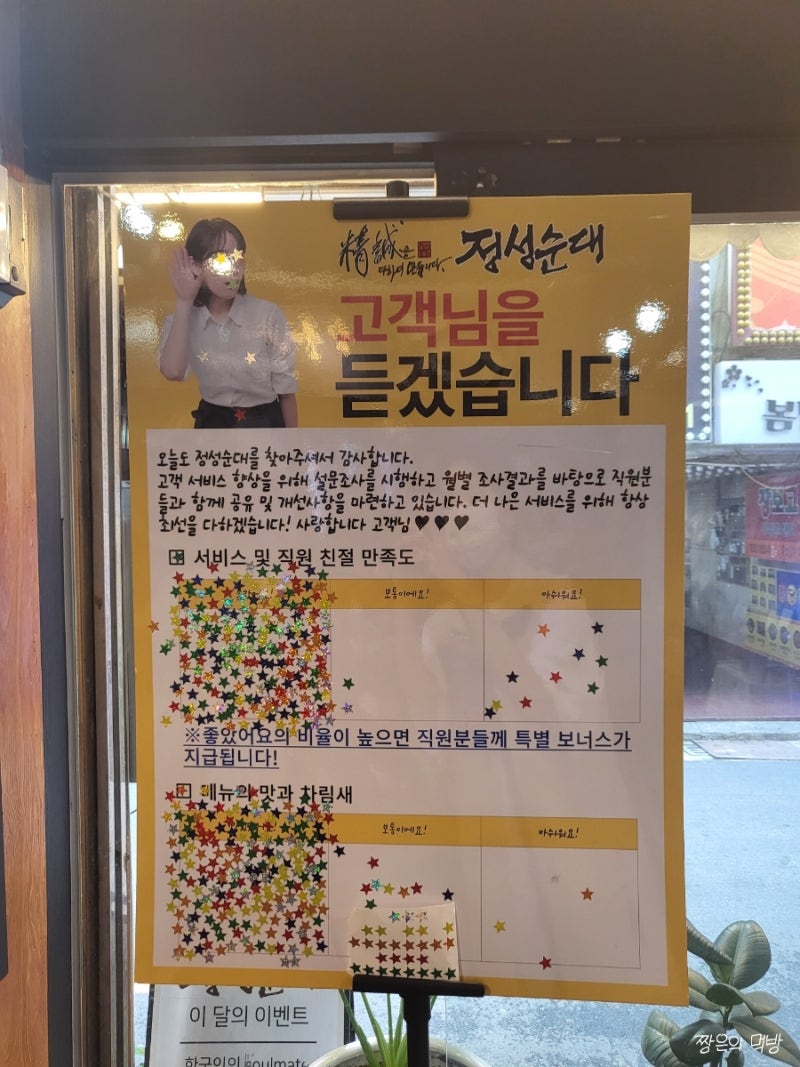 精誠을
다하여 만듭니다.
정성순대
고객님을
듣겠습니다
오늘도 정성순대를 찾아주셔서 감사합니다.
고객 서비스 향상을 위해 설문조사를 시행하고 월별 조사결과를 바탕으로 직원분
들과 함께 공유 및 개선사항을 마련하고 있습니다. 더 나은 서비스를 위해 항상
최선을 다하겠습니다! 사랑합니다 고객님♥♥♥
서비스 및 직원 친절 만족도
보통이에요!
아쉬워요!
※좋았어요의 비율이 높으면 직원분들께 특별 보너스가
지급됩니다!
메뉴의 맛과 차림새
보통이에요!
아쉬워요!
이 달의 이벤트
한국인의 soulmate
봄
짱은의 먹방